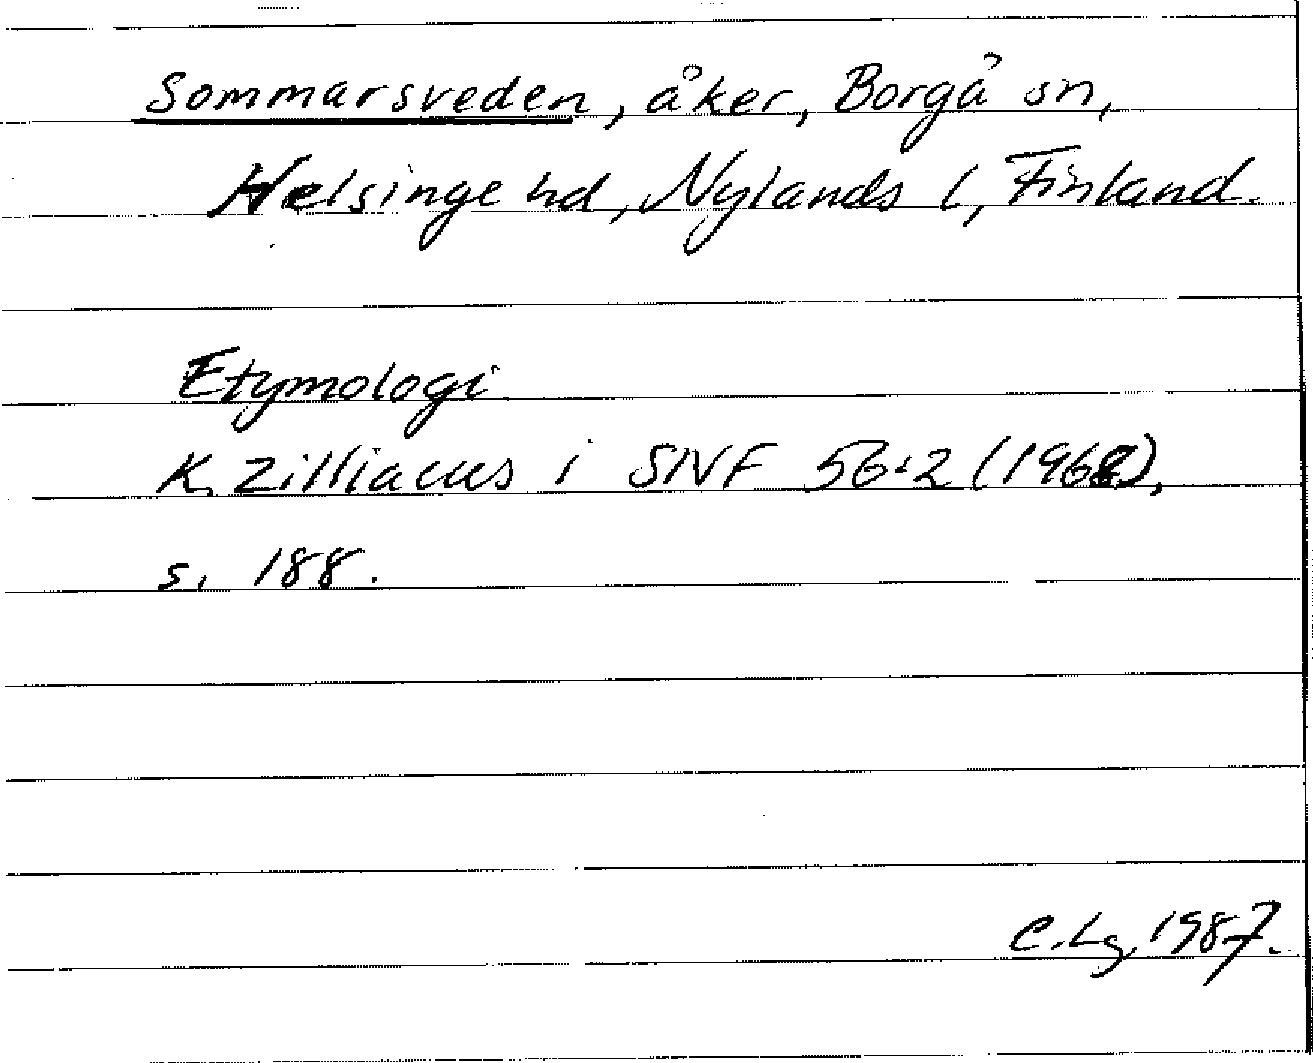 Sommarsveden, åker, Borgå sn,
Helsinge hd, Nylands l, Finland.
Etymologi
K. Zilliacus i SNF 56:2 (1968),
s. 188.
C.Lg, 1987.